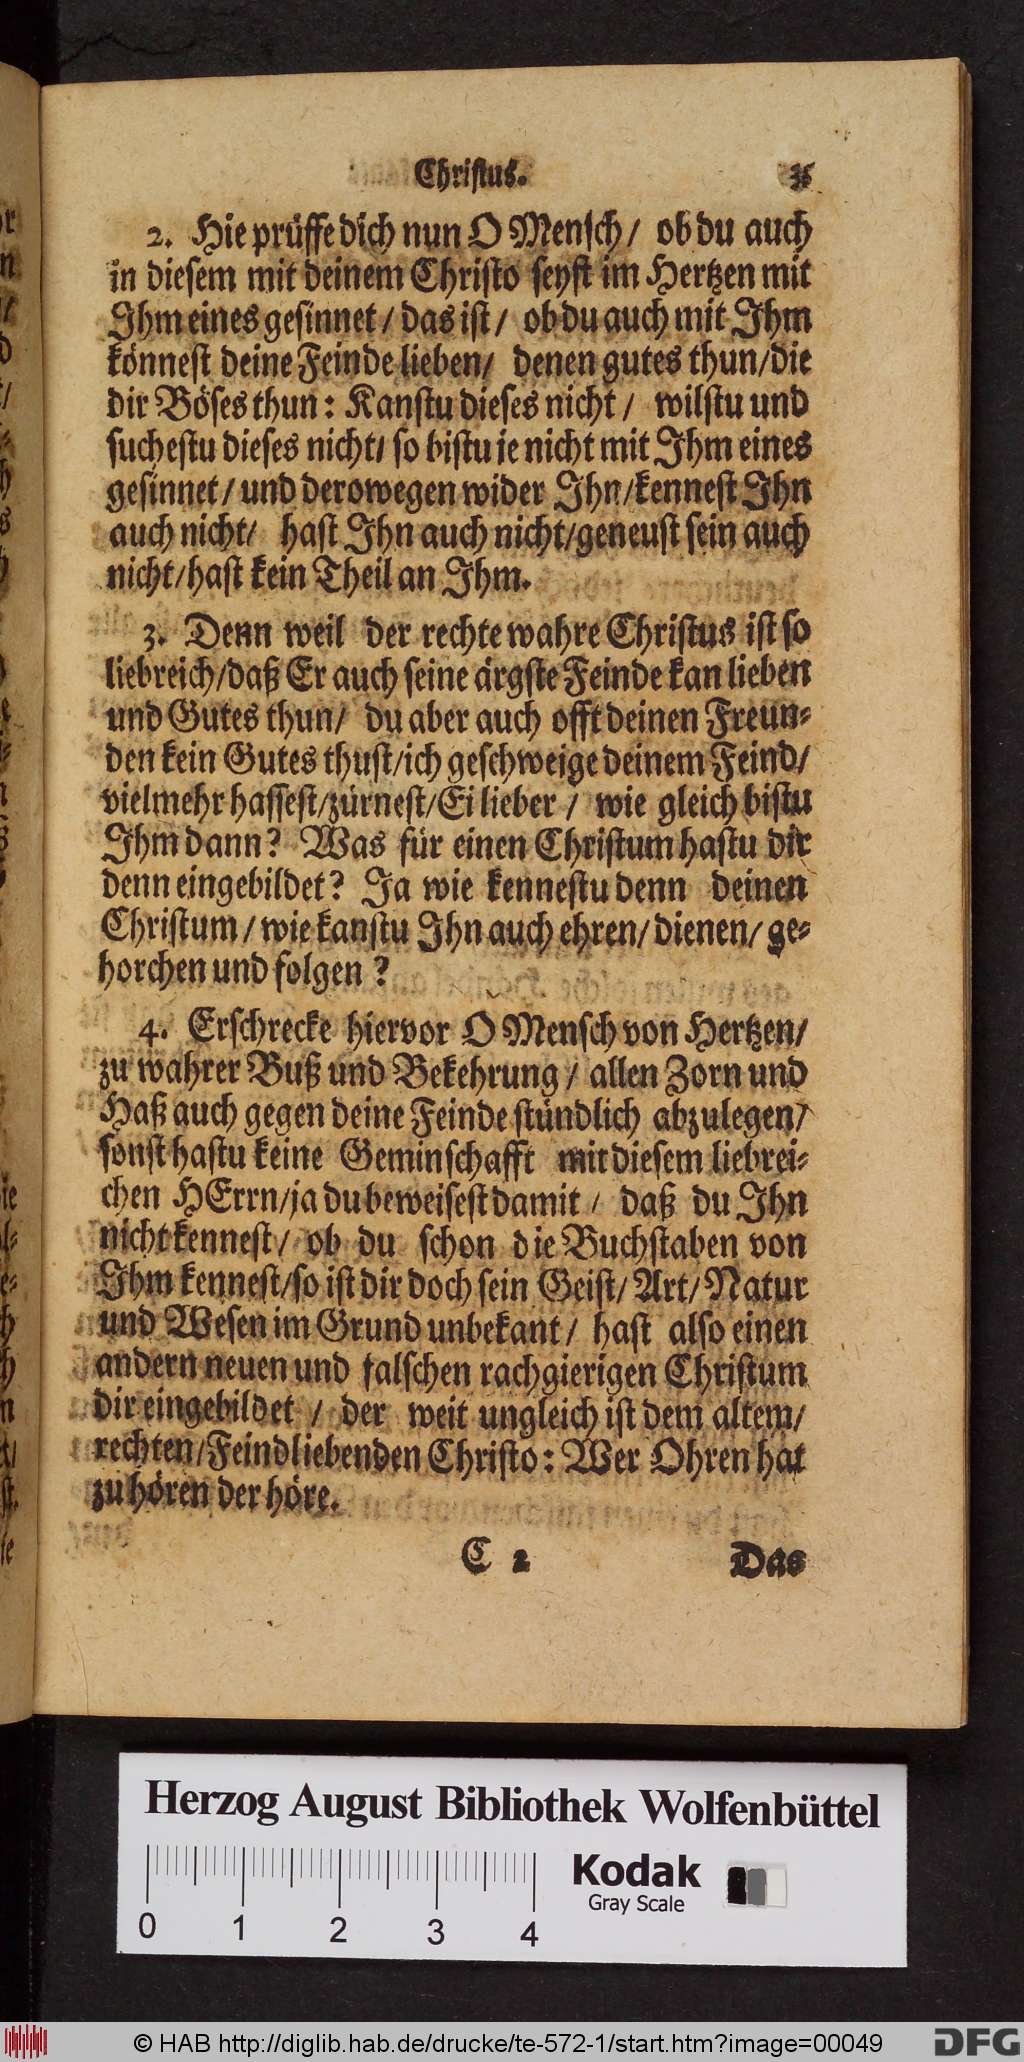 Christus.
2. Hie prüffe dich nun O Mensch / ob du auch
in diesem mit deinem Christo seyst im Hertzen mit
Ihm eines gesinnet / das ist / ob du auch mit Ihm
könnest deine Feinde lieben / denen gutes thun / die
dir Böses thun: Kanstu dieses nicht / wilstu und
suchestu dieses nicht / so bistu je nicht mit Ihm eines
gesinnet / und derowegen wider Ihn / kennest Ihn
auch nicht / hast Ihn auch nicht / geneust sein auch
nicht / hast kein Theil an Ihm.
3. Denn weil der rechte wahre Christus ist so
liebreich / daß Er auch seine ärgste Feinde kan lieben
und Gutes thun / du aber auch offt deinen Freun-
den kein Gutes thust / ich geschweige deinem Feind /
vielmehr hassest / zürnest / Ei lieber / wie gleich bistu
Ihm dann? Was für einen Christum hastu dir
denn eingebildet? Ja wie kennestu denn deinen
Christum / wie kanstu Ihn auch ehren / dienen / ge-
horchen und folgen?
4. Erschrecke hiervor O Mensch von Hertzen /
zu wahrer Buß und Bekehrung / allen Zorn und
Haß auch gegen deine Feinde stündlich abzulegen /
sonst hastu keine Geminschafft mit diesem liebrei-
chen HErrn / ja du beweisest damit / daß du Ihn
nicht kennest / ob du schon die Buchstaben von
Ihm kennest / so ist dir doch sein Geist / Art / Natur
und Wesen im Grund unbekant / hast also einen
andern neuen und falschen rachgierigen Christum
dir eingebildet / der weit ungleich ist dem altem /
rechten / Feindliebenden Christo: Wer Ohren hat
zu hören der höre.
C 2 Das
Herzog August Bibliothek Wolfenbüttel
Kodak
Gray Scale
0 1 2 3 4
© HAB http://diglib.hab.de/drucke/te-572-1/start.htm?image=00049
DFG